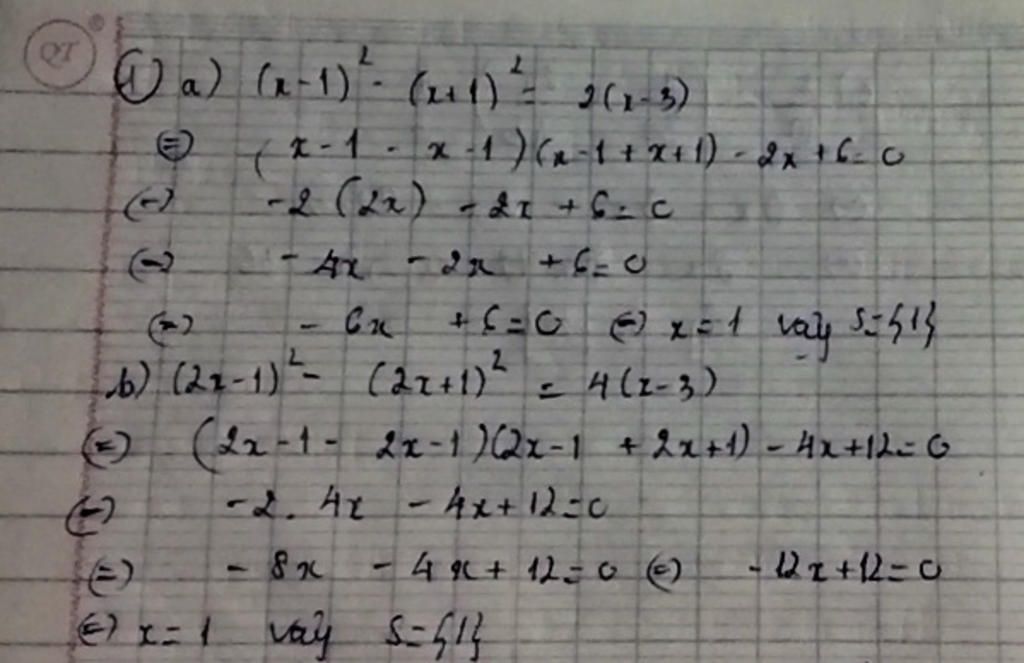 QT
① a) (x-1)² - (x+1)² = 2(x-3)
(=) (x-1 - x-1)(x-1+x+1) - 2x+6=0
(=) -2(2x) - 2x + 6=0
(=) -4x - 2x + 6=0
(=) - 6x + 6=0 (=) x=1 vậy S={1}
b) (2x-1)² - (2x+1)² = 4(x-3)
(=) (2x-1 - 2x-1)(2x-1 + 2x+1) - 4x+12=0
(=) -2. 4x - 4x+12=0
(=) - 8x - 4x+ 12=0 (=) -12x+12=0
(=) x=1 vậy S={1}